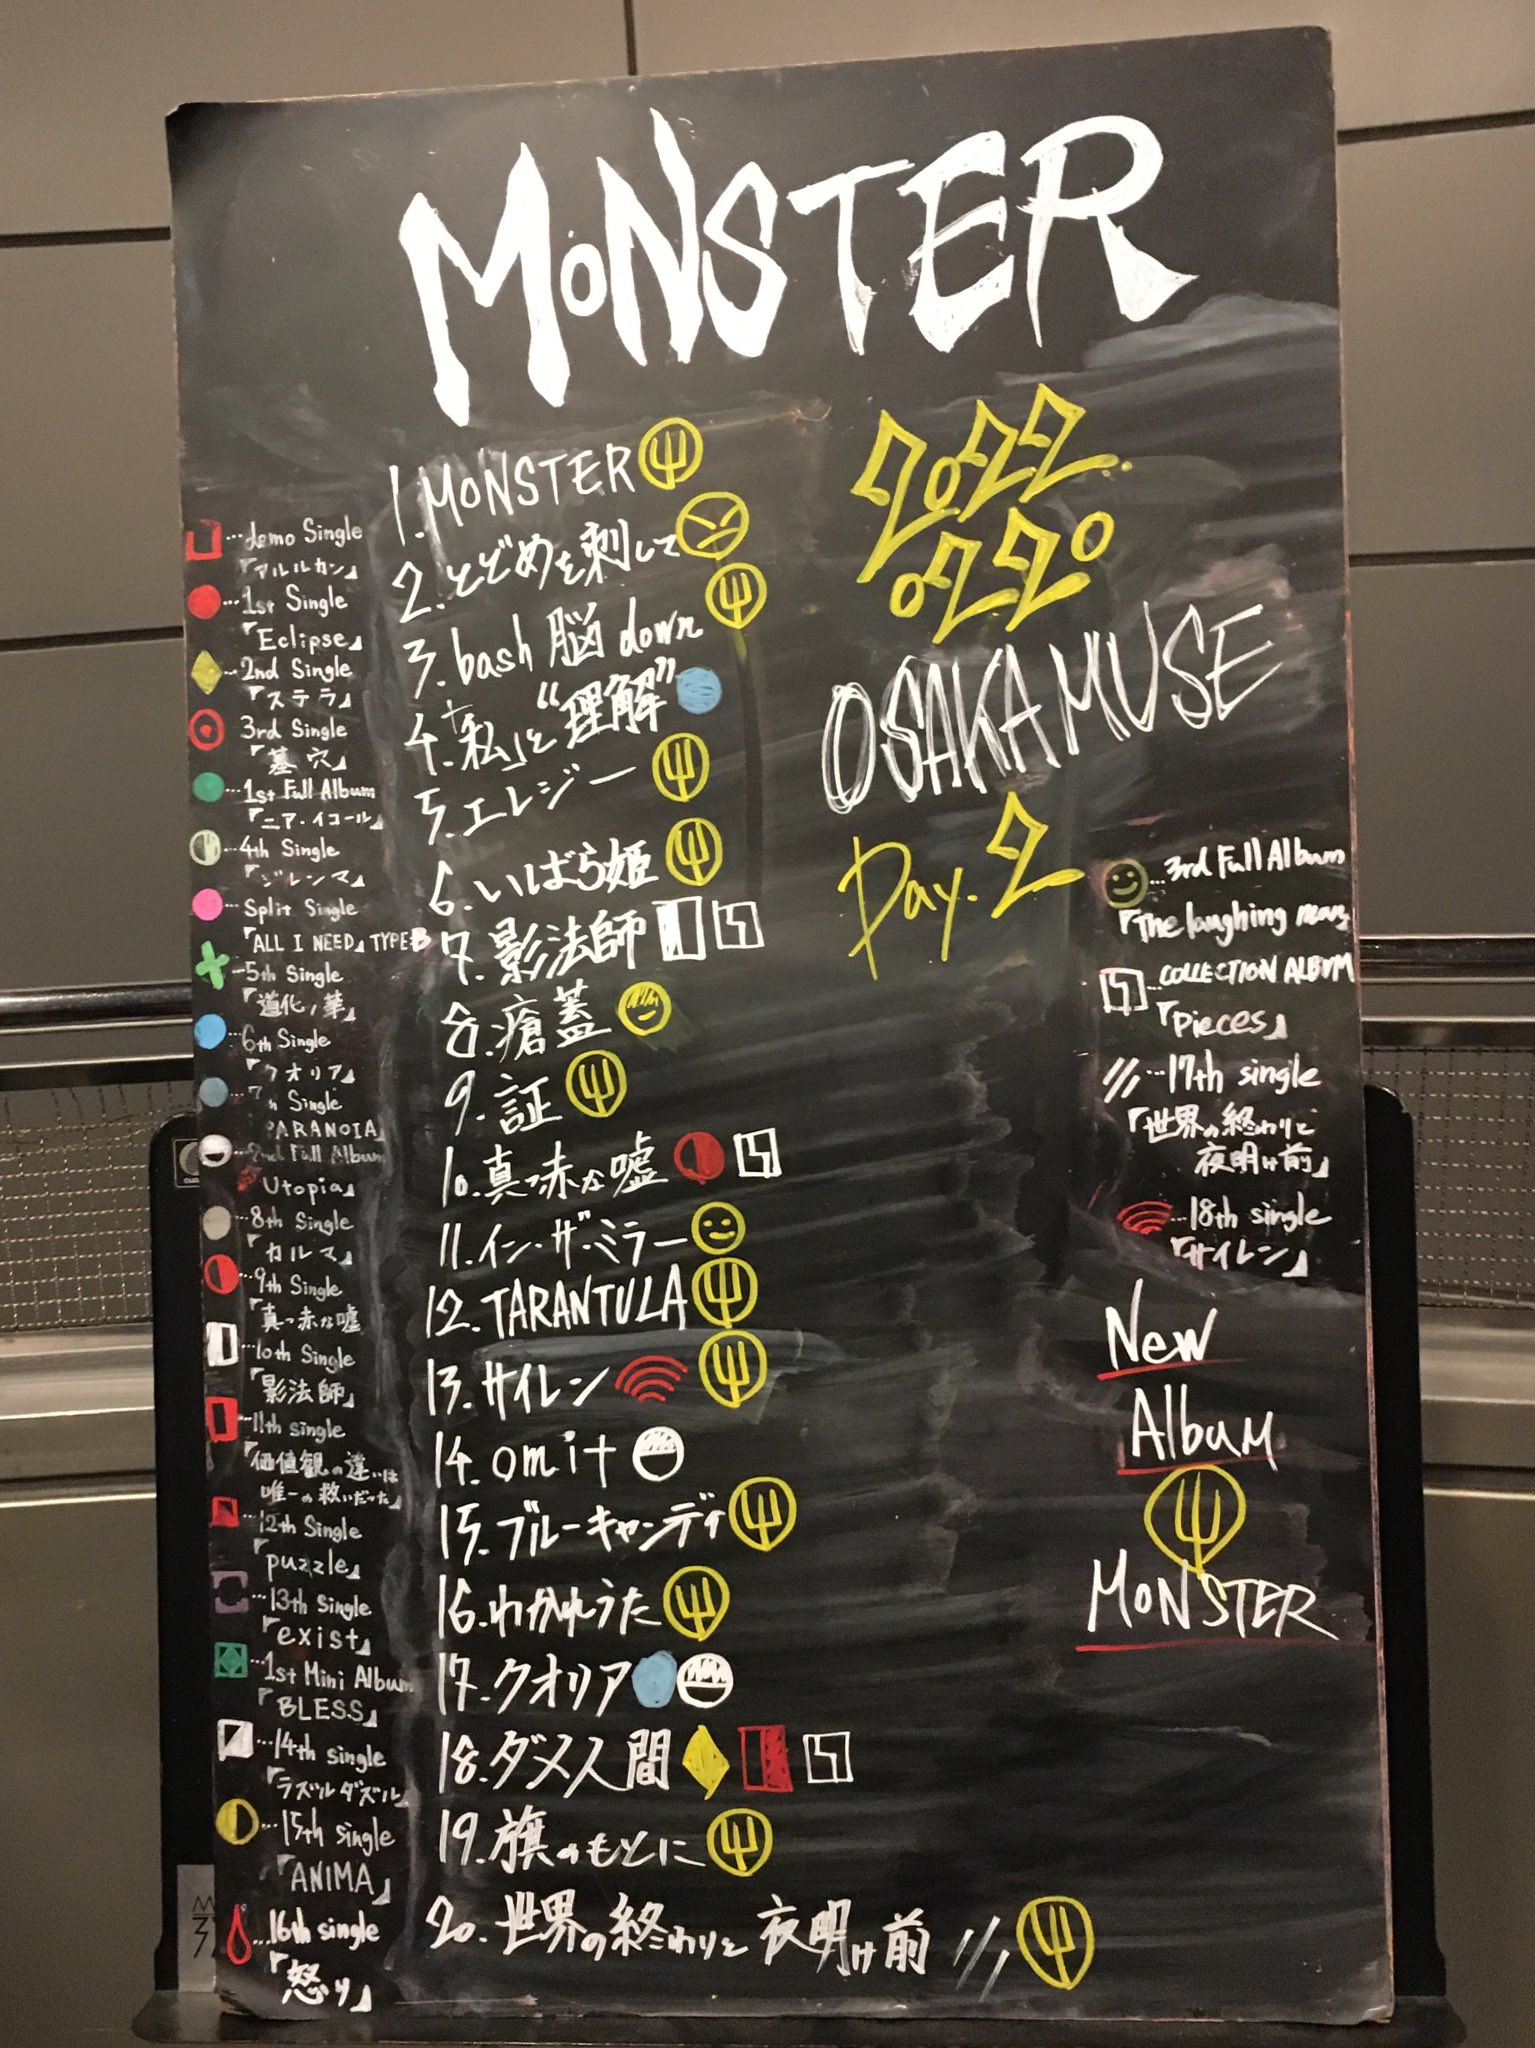 MONSTER
2022.
0220
OSAKA MUSE
Day.2
1.MONSTER
2.とどめを刺して
3.bash 脳 down
4.「私」と“理解”
5.エレジー
6.いばら姫
7.影法師
8.瘡蓋
9.証
10.真っ赤な嘘
11.イン・ザ・ミラー
12.TARANTULA
13.サイレン
14.omit
15.ブルーキャンディ
16.わかれうた
17.クオリア
18.ダメ人間
19.旗のもとに
20.世界の終わりと夜明け前
…demo Single
『アルルカン』
…1st Single
『Eclipse』
…2nd Single
『ステラ』
3rd Single
『墓穴』
…1st Full Album
『ニア・イコール』
…4th Single
『ジレンマ』
…Split Single
『ALL I NEED』TYPE:B
…5th Single
『道化ノ華』
…6th Single
『クオリア』
7th Single
PARANOIA』
2nd Full Album
Utopia』
…8th Single
『カルマ』
…9th Single
『真っ赤な嘘
…10th Single
『影法師』
…11th single
『価値観の違いは
唯一の救いだった』
…12th Single
『puzzle』
…13th Single
『exist』
…1st Mini Album
『BLESS』
…14th single
『ラズルダズル』
…15th single
『ANIMA』
…16th single
『怒り』
…3rd Full Album
『The laughing man』
…COLLECTION ALBUM
『Pieces』
…17th single
『世界の終わりと
夜明け前』
…18th single
『サイレン』
New
Album
MONSTER